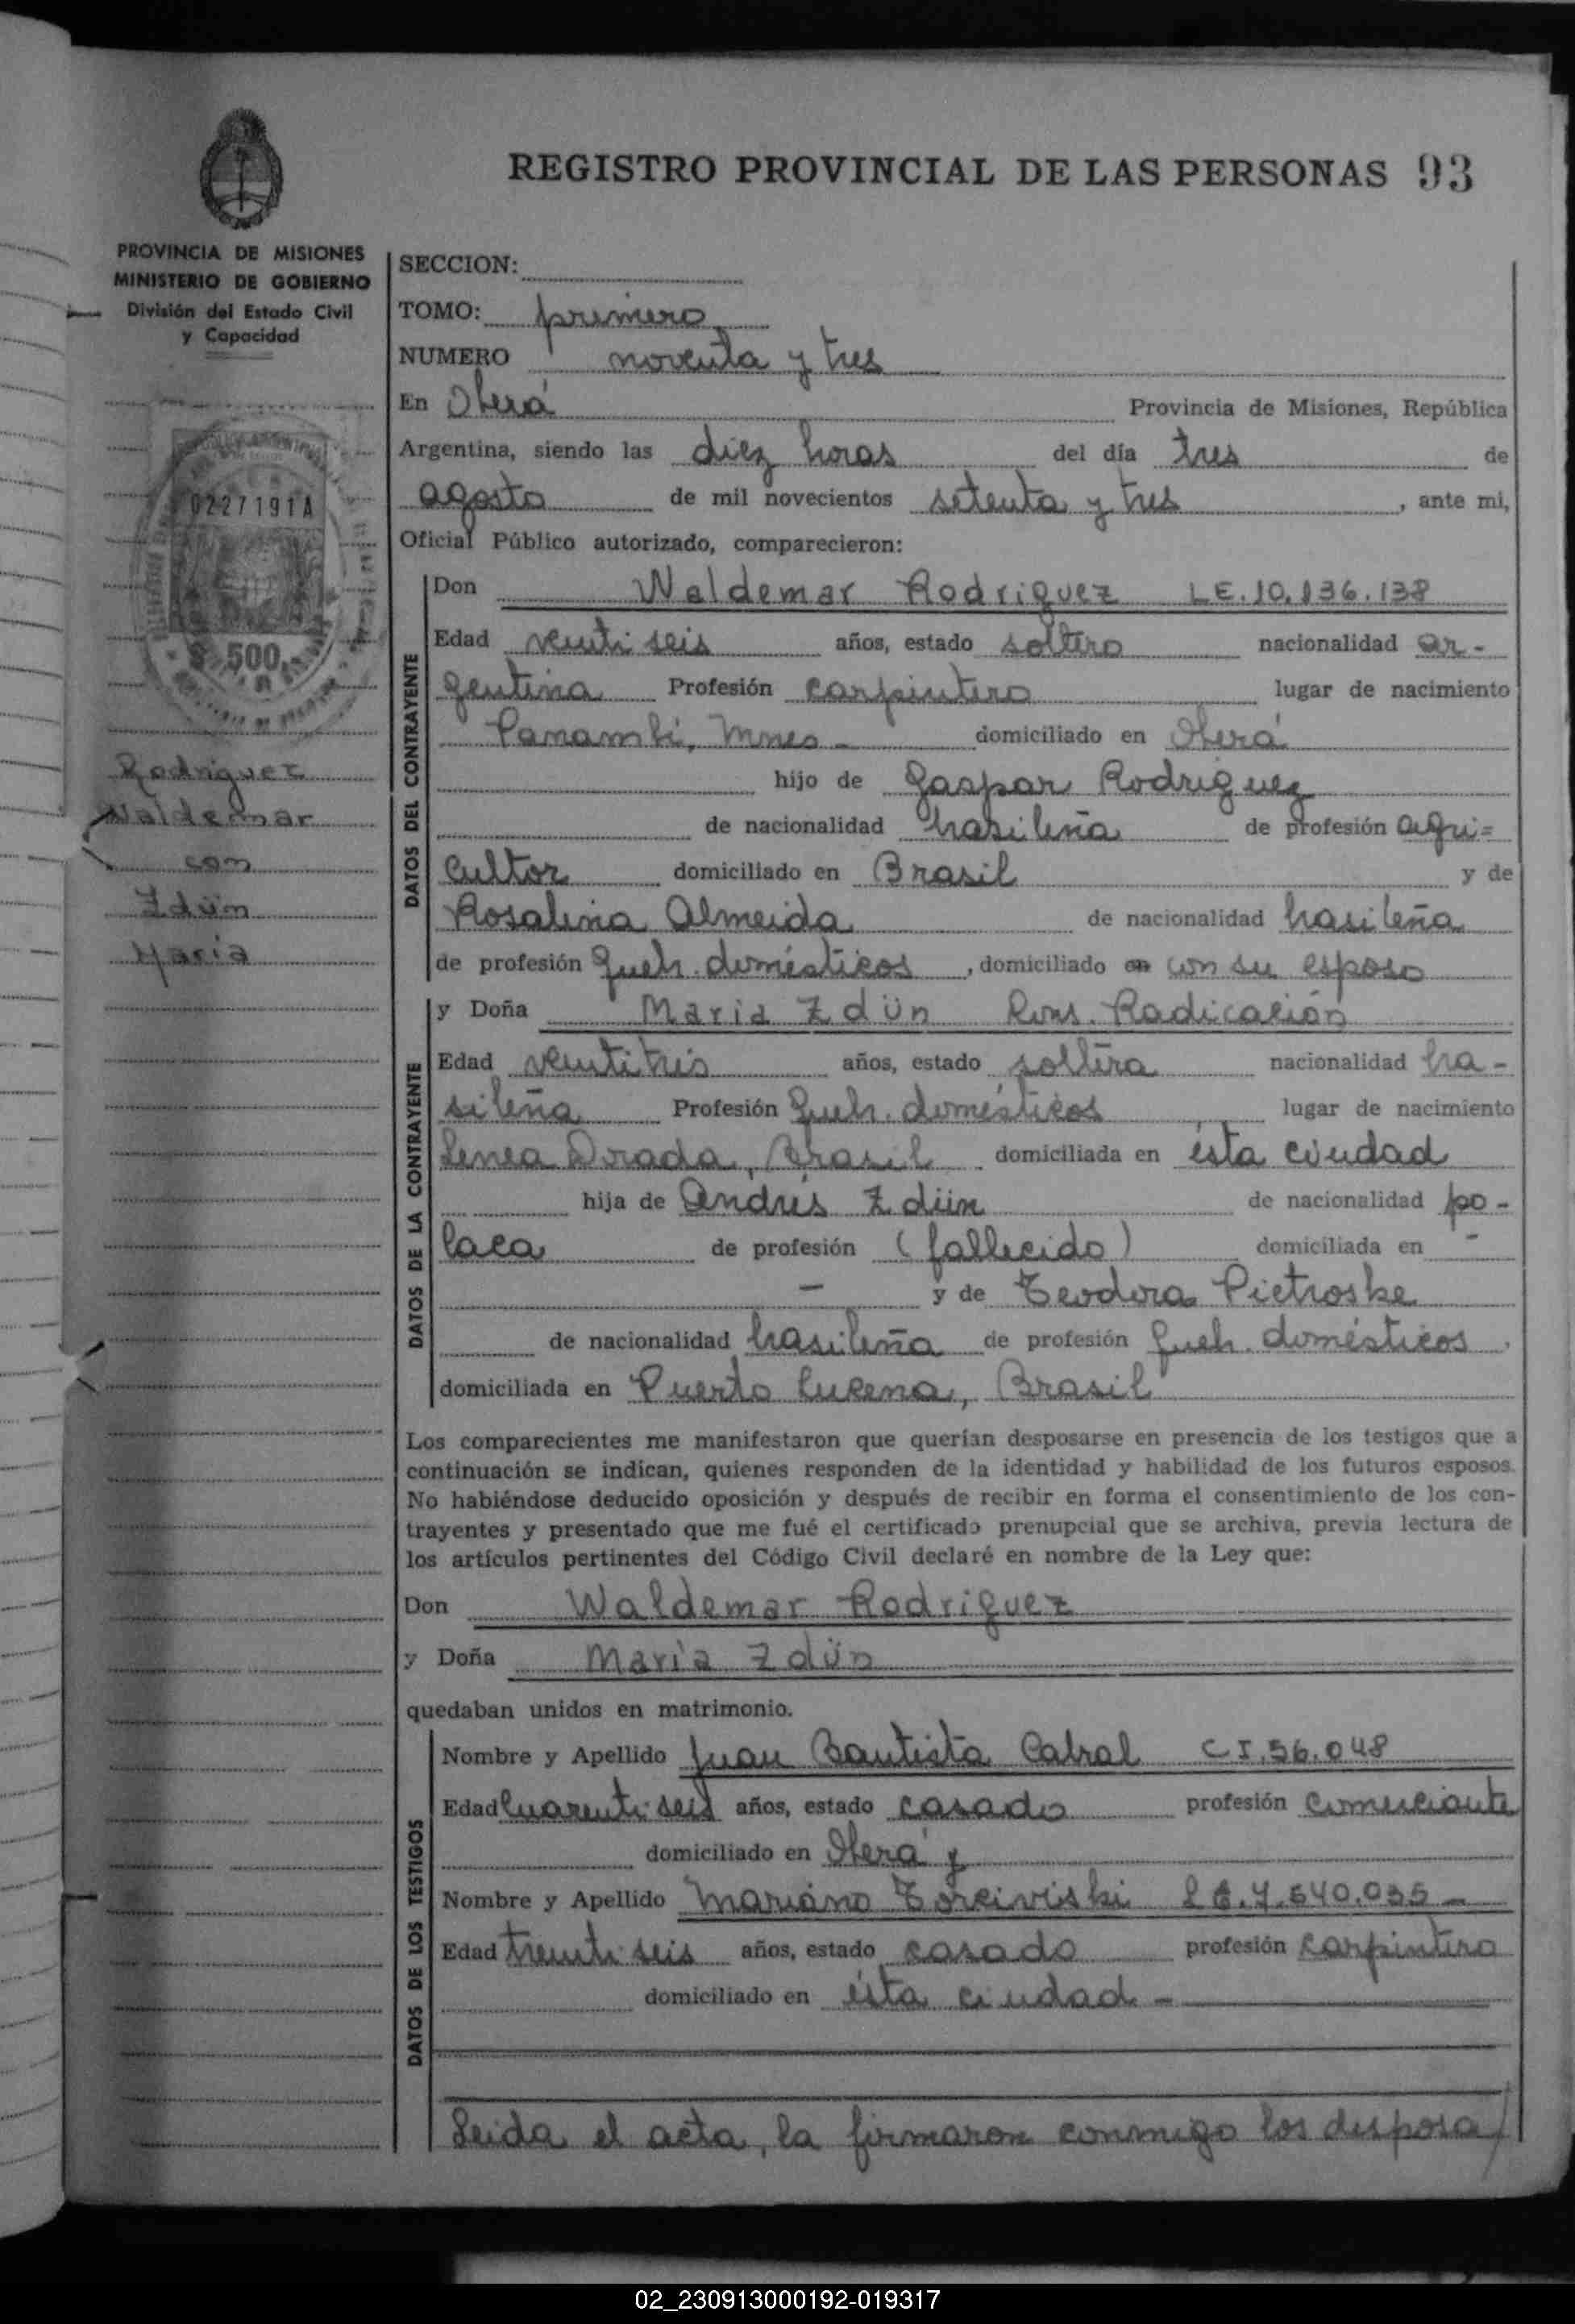 REGISTRO PROVINCIAL DE LAS PERSONAS 93
PROVINCIA DE MISIONES
MINISTERIO DE GOBIERNO
División del Estado Civil
y Capacidad
0227191A
$ 500.
Rodriguez
Waldemar
con
Zdün
Maria
SECCION:
TOMO: primero
NUMERO noventa y tres
En Oberá Provincia de Misiones, República
Argentina, siendo las diez horas del día tres de
agosto de mil novecientos setenta y tres, ante mi,
Oficial Público autorizado, comparecieron:
DATOS DEL CONTRAYENTE
Don Waldemar Rodriguez LE.10.136.138
Edad veinti seis años, estado soltero nacionalidad ar-
gentina Profesión carpintero lugar de nacimiento
Panambi, Mnes - domiciliado en Oberá
hijo de Gaspar Rodriguez
de nacionalidad brasileña de profesión agri=
cultor domiciliado en Brasil y de
Rosalina Almeida de nacionalidad brasileña
de profesión Queh. domésticos, domiciliado en con su esposo
DATOS DE LA CONTRAYENTE
y Doña Maria Zdün Cons. Radicación
Edad veintitrés años, estado soltera nacionalidad bra-
sileña Profesión Queh. domésticos lugar de nacimiento
Linea Dorada, Brasil domiciliada en ésta ciudad
hija de Andrés Zdün de nacionalidad po-
laca de profesión (fallecido) domiciliada en -
- y de Teodora Pietroske
de nacionalidad brasileña de profesión Queh. domésticos,
domiciliada en Puerto Lucena, Brasil
Los comparecientes me manifestaron que querían desposarse en presencia de los testigos que a
continuación se indican, quienes responden de la identidad y habilidad de los futuros esposos.
No habiéndose deducido oposición y después de recibir en forma el consentimiento de los con-
trayentes y presentado que me fué el certificado prenupcial que se archiva, previa lectura de
los artículos pertinentes del Código Civil declaré en nombre de la Ley que:
Don Waldemar Rodriguez
y Doña Maria Zdün
quedaban unidos en matrimonio.
DATOS DE LOS TESTIGOS
Nombre y Apellido Juan Bautista Cabral CI.56.048
Edad Cuarenti seis años, estado casado profesión comerciante
domiciliado en Oberá y
Nombre y Apellido Mariano Torciviski LE.7.540.035 -
Edad treinti seis años, estado casado profesión carpintero
domiciliado en ésta ciudad -
Leida el acta, la firmaron conmigo los desposa/
02_230913000192-019317